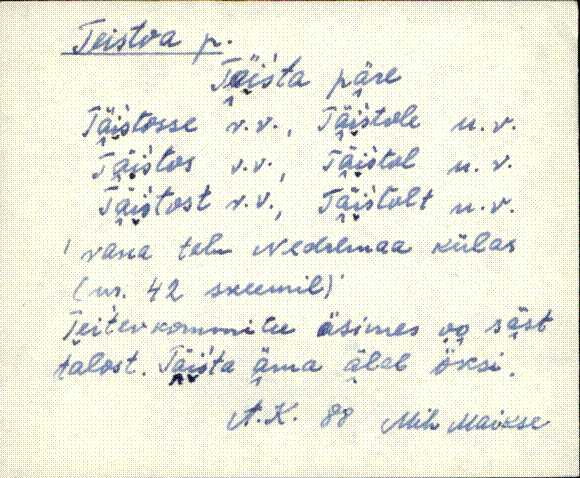 Teistva p.
Täišta päre
Täištosse v.v., Täištole u.v.
Täištos v.v., Täištol u.v.
Täištost v.v., Täištolt u.v.
'vana talu Nedremaa külas
(nr. 42 skeemil)'
Teitevkommitee äsimes oo säst
talost. Täišta äma älab öksi.
A.K. 88 Mih Maikse